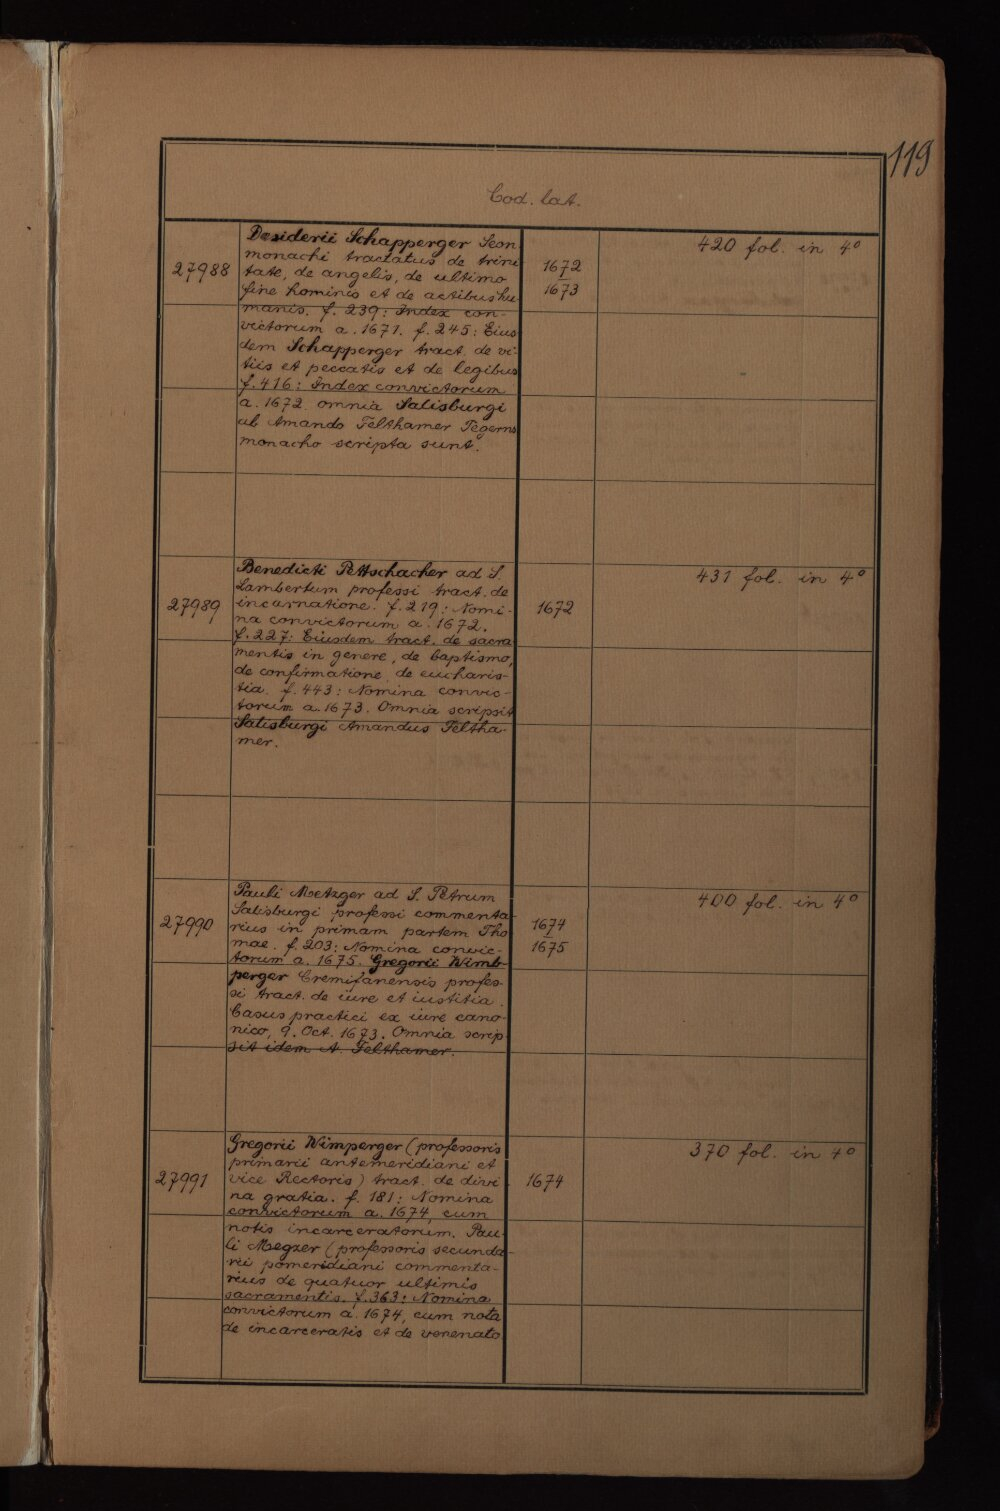 119
Cod. lat.
27988
Desiderii Schapperger Seon
monachi tractatus de trini
tate, de angelis, de ultimo
fine hominis et de actibus hu
manis. f. 239: Index con-
victorum a. 1671. f. 245: Eius
dem Schapperger tract. de vi-
tiis et peccatis et de legibus
f. 416: Index convictorum
a. 1672 omnia Salisburgi
ab Amando Felthamer Tegerns
monacho scripta sunt.
1672
1673
420 fol. in 4°
27989
Benedicti Pettschacher ad S.
Lambertum professi tract. de
incarnatione. f. 219: Nomi-
na convictorum a. 1672.
f. 227: Eiusdem tract. de sacra
mentis in genere, de baptismo,
de confirmatione, de eucharis-
tia. f. 443: Nomina convic-
torum a. 1673. Omnia scripsit
Salisburgi Amandus Feltha-
mer.
1672
431 fol. in 4°
27990
Pauli Metzger ad S. Petrum
Salisburgi professi commenta-
rius in primam partem Tho
mae. f. 203: Nomina convic-
torum a. 1675. Gregorii Wimb-
perger Cremifanensis profes-
si tract. de iure et iustitia.
Casus practici ex iure cano-
nico, 9. Oct. 1673. Omnia scrip
sit idem A. Felthamer.
1674
1675
400 fol. in 4°
27991
Gregorii Wimperger (professoris
primarii antemeridiani et
vice Rectoris) tract. de divi-
na gratia. f. 181: Nomina
convictorum a. 1674, cum
notis incarceratorum. Pau-
li Megzer (professoris secunda-
rii pomeridiani commenta-
rius de quatuor ultimis
sacramentis. f. 363: Nomina
convictorum a. 1674, cum nota
de incarceratis et de venenato
1674
370 fol. in 4°